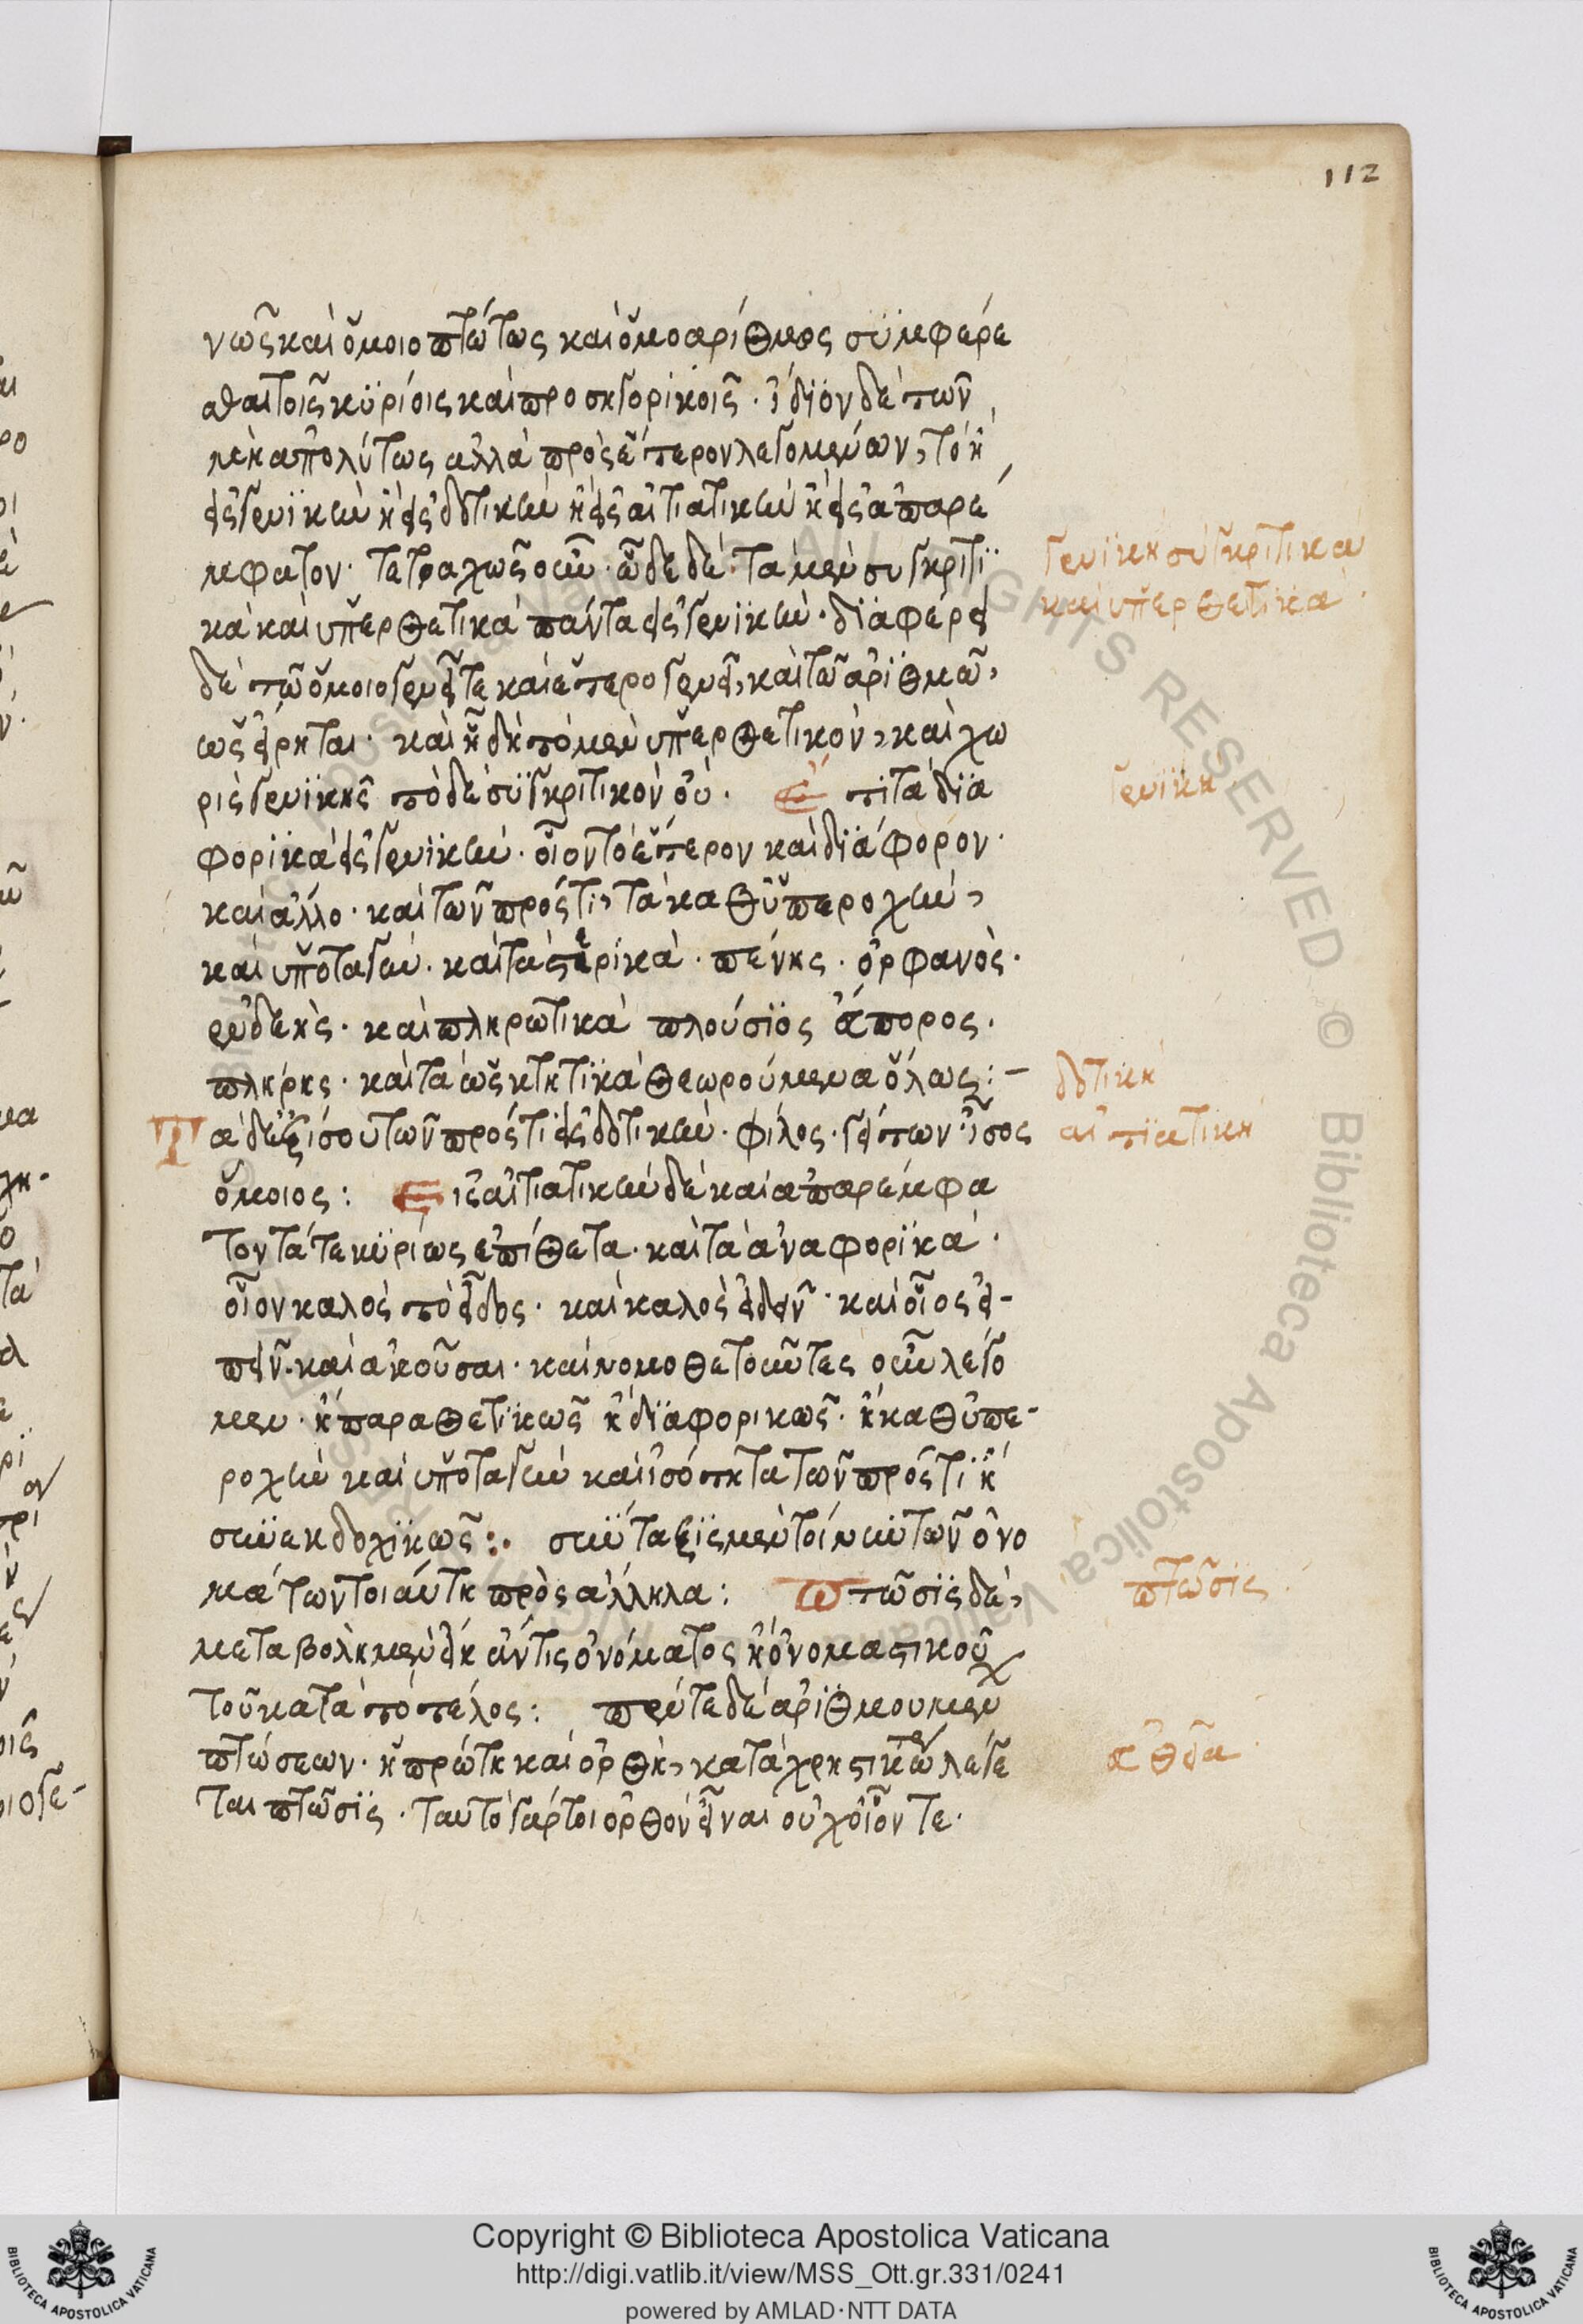 112
νῶς καὶ ὁμοιοπτώτως καὶ ὁμοαρίθμος συμφέρε
σθαι τοῖς κυρίοις καὶ προσηγορικοῖς· ἴδιον δὲ τῶν
μὴ ἀπολύτως ἀλλὰ πρὸς ἕτερον λεγομένων, τὸ ἢ
εἰς γενικὴν ἢ εἰς δοτικὴν ἢ εἰς αἰτιατικὴν ἢ εἰς ἀπαρέ
μφατον· τετραχῶς οὖν· ὧδε δέ· τὰ μὲν συγκριτι
κὰ καὶ ὑπερθετικὰ πάντα εἰς γενικήν· διαφέρει
δὲ τῷ ὁμοιογενεῖ τε καὶ ἑτερογενεῖ, καὶ τῷ ἀριθμῷ,
ὡς εἴρηται· καὶ ἤδη τὸ μὲν ὑπερθετικόν, καὶ χω
ρὶς γενικῆς τὸ δὲ συγκριτικὸν οὔ· Ἔ τι τὰ δια
φορικὰ εἰς γενικήν· οἷον τὸ ἕτερον καὶ διάφορον·
καὶ ἄλλο· καὶ τῶν πρός τι, τὰ καθ ὑπεροχὴν,
καὶ ὑποταγήν· καὶ τὰ στερικά· πένης· ὀρφανὸς·
ἐνδεὴς· καὶ πληρωτικὰ πλούσιος ἄπορος·
πλήρης· καὶ τὰ ὡς κτητικὰ θεωρούμενα ὅλως:–
Τὰ δὲ ἐξίσου τῶν πρός τι εἰς δοτικήν· φίλος· γείτων· ἴσος
ὅμοιος: Εἰς αἰτιατικὴν δὲ καὶ ἀπαρέμφα
τον τά τε κυρίως ἐπίθετα· καὶ τὰ ἀναφορικά·
οἷον καλὸς τὸ εἶδος· καὶ καλὸς ἰδεῖν· καὶ οἷος εἰ-
πεῖν· καὶ ἀκοῦσαι· καὶ νομοθετοῦντες οὖν λέγο
μεν· ἢ παραθετικῶς ἢ διαφορικῶς· ἢ καθ ὑπε-
ροχὴν καὶ ὑποταγὴν καὶ ἰσότητα τῶν πρός τι ἢ
συνεκδοχικῶς:· σύνταξις μέντοι νῦν τῶν ὀνο
μάτων τοιαύτη πρὸς ἄλληλα: Πτῶσις δέ,
μεταβολὴ μὲν εἴη ἄν τις ὀνόματος ἢ ὀνομαστικοῦ
τοῦ κατὰ τὸ τέλος: πέντε δὲ ἀριθμουμένων
πτώσεων· ἡ πρώτη καὶ ὀρθή, καταχρηστικῶτερ λέγε
ται πτῶσις· ταυτὸ γάρ τοι ὀρθὸν εἶναι οὐχ οἷόν τε·
γενικὴ συγκριτικὰ
καὶ ὑπερθετικά·
γενικὴ
δοτικὴ
αἰτιατικὴ
πτῶσις
Copyright © Biblioteca Apostolica Vaticana
http://digi.vatlib.it/view/MSS_Ott.gr.331/0241
powered by AMLAD·NTT DATA
BIBLIOTECA APOSTOLICA VATICANA
BIBLIOTECA APOSTOLICA VATICANA